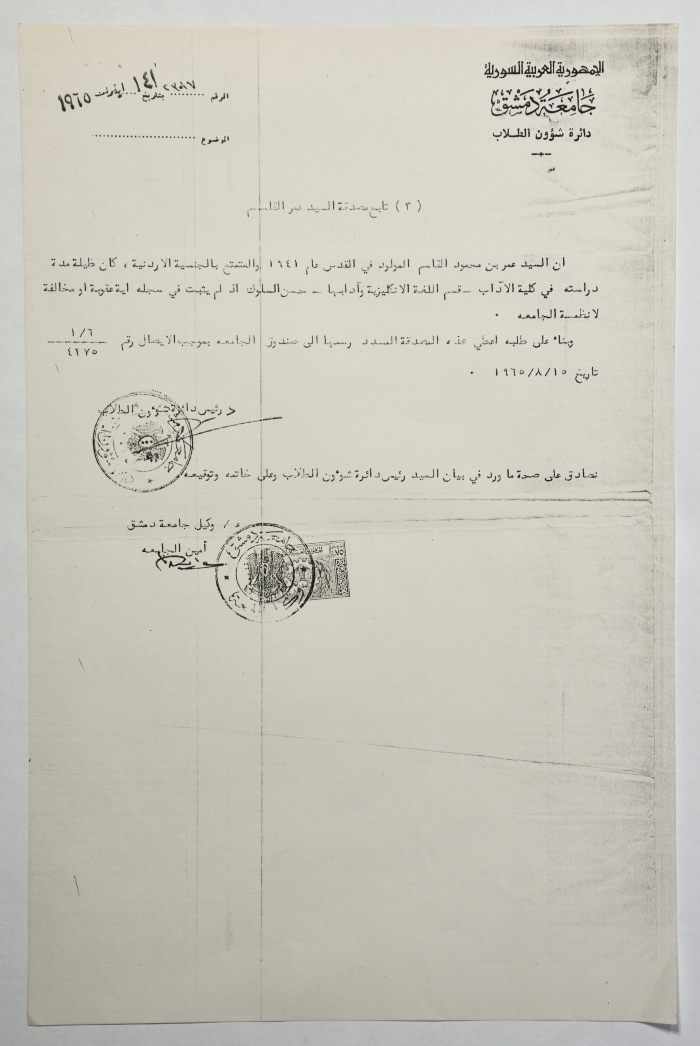 الجمهورية العربية السورية
جامعة دمشق
دائرة شؤون الطلاب
الرقم بتاريخ ١٩٦٥
الموضوع
( ٣ ) تابع مصدقة السيد عمر القاسم
ان السيد عمر بن محمود القاسم المولود في القدس عام ١٩٤١ والمتمتع بالجنسية الاردنية ، كان طيلة مدة
دراسته في كلية الآداب - قسم اللغة الانكليزية وآدابها - حسن السلوك اذ لم يثبت في سجله اية عقوبة او مخالفة
لانظمة الجامعه .
وبناء على طلبه اعطي هذه المصدقة المسدد رسمها الى صندوق الجامعه بموجب الايصال رقم ١/٦
٤٢٧٥
تاريخ ١٩٦٥/٨/١٥ .
رئيس دائرة شؤون الطلاب
نصادق على صحة ما ورد في بيان السيد رئيس دائرة شؤون الطلاب وعلى خاتمه وتوقيعه .
ع/ وكيل جامعة دمشق
أمين الجامعه
جامعة دمشق
٧٥